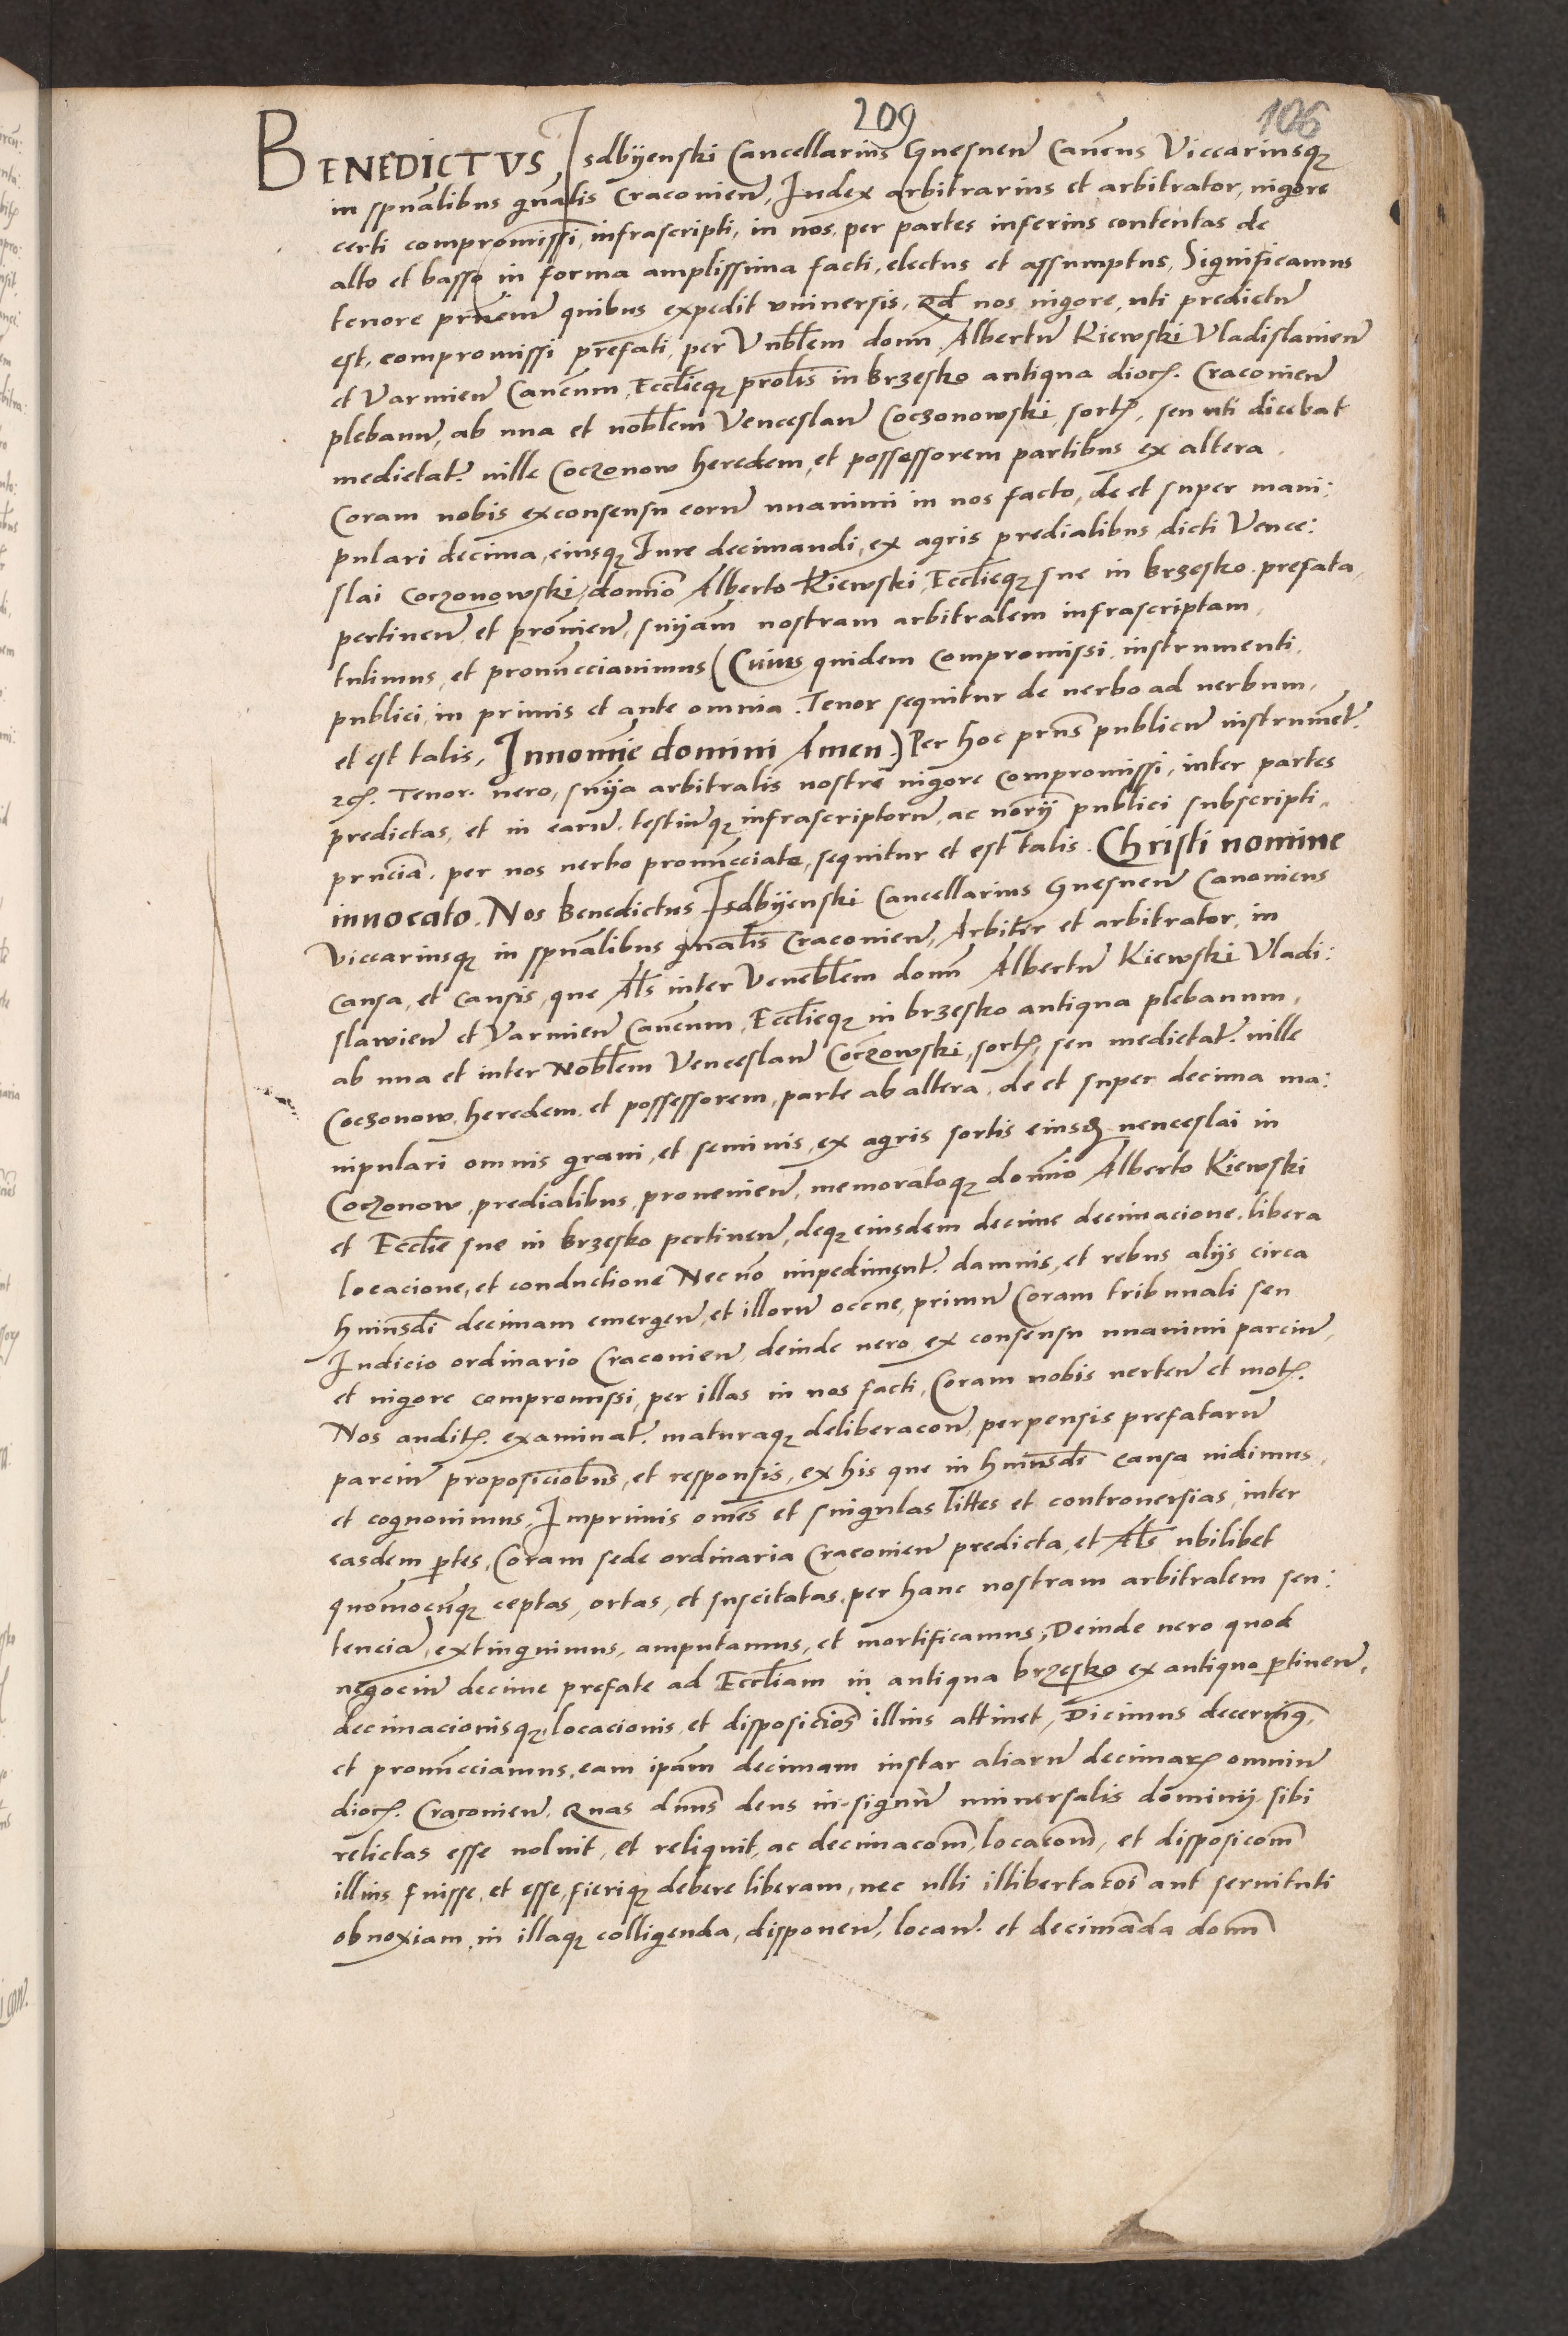 209
106
BENEDICTVS Isdbijenski Cancellarius Gnesneñ Cañcus Viccariusqz
in spũalibus gñalis Cracovieñ, Iudex arbitrarius et arbitrator, uigore
certi compromissi, infrascripti, in nos, per partes inferius contentas de
alto et basso in forma amplissima facti, electus et assumptus, Significamus
tenore prñcium quibus expedit vniuersis. Qd nos uigore, uti predictũ
est, compromissi prefati, per Vnblem domñ Albertũ Kiewski Vladislauieñ
et Varmieñ Cañcum, Ecclieqz prolis in Brzesko antiqua dioc. Cracouieñ
plebanũ, ab una et noblem Venceslaũ Coczonowski, sort, seu uti dicebat
medietat. uille Coczonow heredem, et possessorem partibus ex altera.
Coram nobis ex consensu eorũ unanimi in nos facto, de et super mani:
pulari decima, eiusqz Iure decimandi, ex agris predialibus dicti Vence:
slai Coczonowski, domio Alberto Kiewski, Ecclieqz sue in Brzesko prefata,
pertineñ et prouieñ, sniam nostram arbitralem infrascriptam,
tulimus, et pronuncciauimus (Cuius quidem compromissi, instrumenti,
publici, in primis et ante omnia. Tenor sequitur de uerbo ad uerbum,
et est talis, Innomie domini Amen.) Per hoc prñs publicũ instrumẽt.
etc. Tenor. uero, snija arbitralis nostre uigore compromissi, inter partes
predictas, et in earũ, testiũqz infrascriptorũ, ac norij publici subscripti,
prñcia, per nos uerbo pronuncciate, sequitur et est talis. Christi nomine
inuocato. Nos Benedictus Isdbijenski Cancellarius Gnesneñ Canonicus
Viccariusqz in spũalibus gñalis Cracouieñ, Arbiter et arbitrator, in
causa, et causis, que Als inter Veneblem domñ Albertũ Kiewski Vladi:
slawieñ et Varmieñ Cañcum, Ecclieqz in brzesko antiqua plebanum,
ab una et inter Noblem Venceslaũ Coczowski, sort, seu medietat. uille
Coczonow, heredem et possessorem, parte ab altera, de et super decima ma:
nipulari omnis grani, et seminis, ex agris sortis eiusd uenceslai in
Coczonow, predialibus, proueniẽñ, memoratoqz domio Alberto Kiewski
et Ecclie sue in brzesko pertineñ, deqz eiusdem decime decimacione, libera
locacione, et conductione Necno impediment. damnis, et rebus alijs circa
huiusdi decimam emergeñ, et illorũ occne, primũ Coram tribunali seu
Iudicio ordinario Cracouieñ, deinde uero ex consensu unanimi parciũ,
et uigore compromissi, per illas in nos facti, Coram nobis uerteñ et mot.
Nos audit. examinat. maturaqz deliberacoñ, perpensis prefatarũ
parciũ proposiciobus, et responsis, ex his que in huiusdi causa uidimus,
et cognouimus, Imprimis omes et singulas littes et controuersias, inter
easdem ptes, Coram sede ordinaria Cracouieñ predicta, et Als ubilibet
quomocunqz ceptas, ortas, et suscitatas, per hanc nostram arbitralem sen:
tencia, extinguimus, amputamus, et mortificamus; Deinde uero quod
negociũ decime prefate ad Eccliam in antiqua brzesko ex antiquo ptineñ,
decimacionisqz, locacionis, et disposicios illius attinet, Dicimus decernimꝰ,
et pronuncciamus, eam ipam decimam instar aliarũ decimar omniũ
dioc. Cracouieñ. Quas dnns deus in signũ uniuersalis dominij sibi
relictas esse uoluit, et reliquit, ac decimacom, locacom, et disposicom
illius fuisse, et esse, fieriqz debere liberam, nec ulli illibertacos aut seruituti
obnoxiam, in illaqz colligenda, disponeñ, locañ. et decimãda domñ